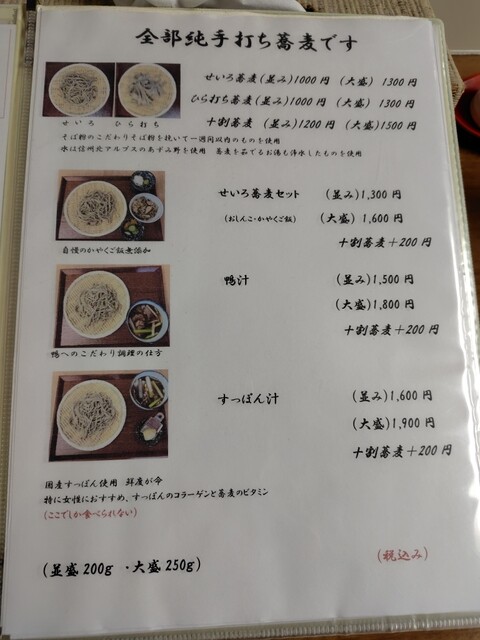 全部純手打ち蕎麦です
せいろ蕎麦(並み)1000円 (大盛) 1300円
ひら打ち蕎麦(並み)1000円 (大盛) 1300円
十割蕎麦 (並み)1200円 (大盛)1500円
せいろ ひら打ち
そば粉のこだわりそば粉を挽いて一週間以内のものを使用
水は信州北アルプスのあずみ野を使用 蕎麦を茹でるお湯も浄水したものを使用
せいろ蕎麦セット (並み)1,300円
(おしんこ・かやくご飯) (大盛) 1,600円
十割蕎麦+200円
自慢のかやくご飯無添加
鴨汁 (並み)1,500円
(大盛)1,800円
十割蕎麦+200円
鴨へのこだわり調理の仕方
すっぽん汁 (並み)1,600円
(大盛)1,900円
十割蕎麦+200円
国産すっぽん使用 鮮度が命
特に女性におすすめ、すっぽんのコラーゲンと蕎麦のビタミン
(ここでしか食べられない)
(並盛200g ・大盛250g)
(税込み)